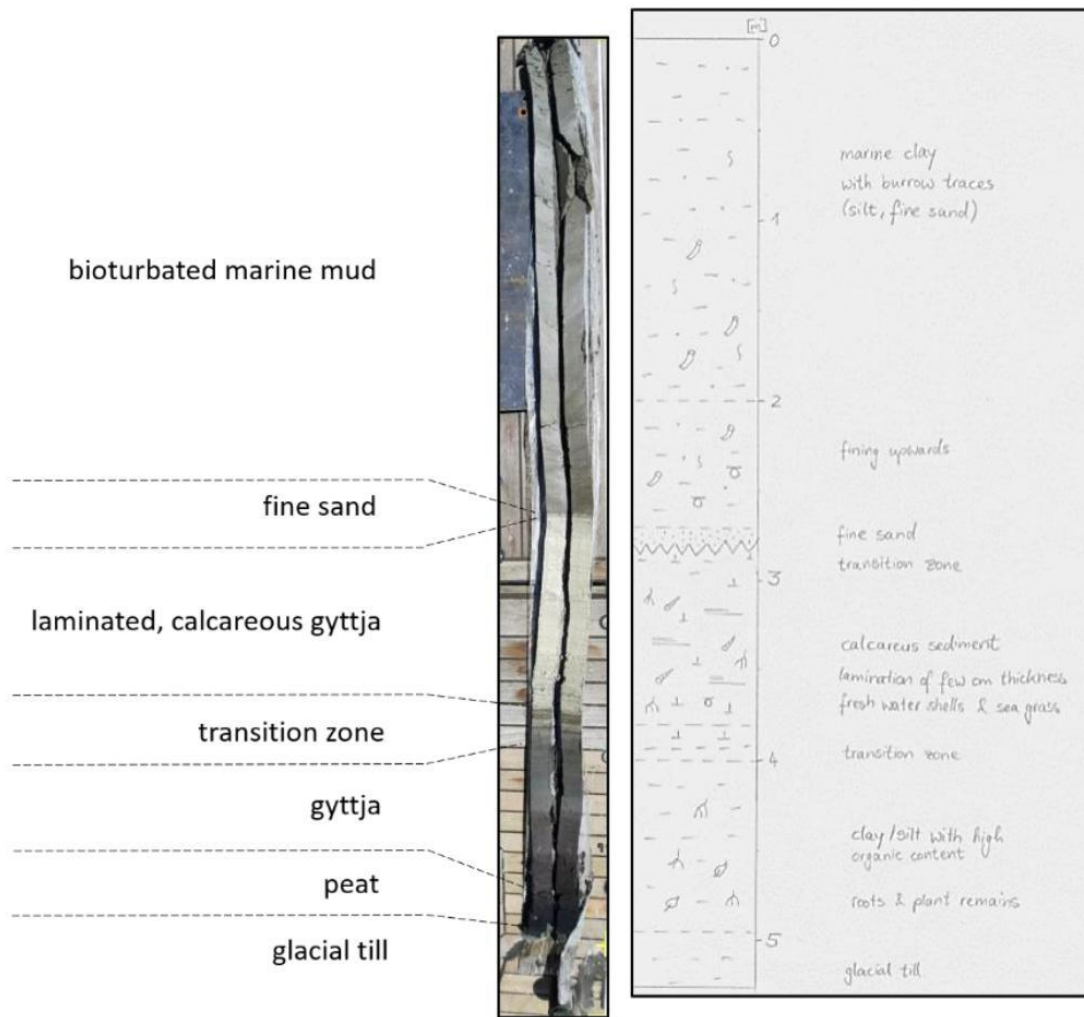 bioturbated marine mud
fine sand
laminated, calcareous gyttja
transition zone
gyttja
peat
glacial till
[m]
0
marine clay
with burrow traces
(silt, fine sand)
1
2
fining upwards
fine sand
transition zone
3
calcareus sediment
lamination of few cm thickness
fresh water shells & sea grass
transition zone
4
clay/silt with high
organic content
roots & plant remains
5
glacial till